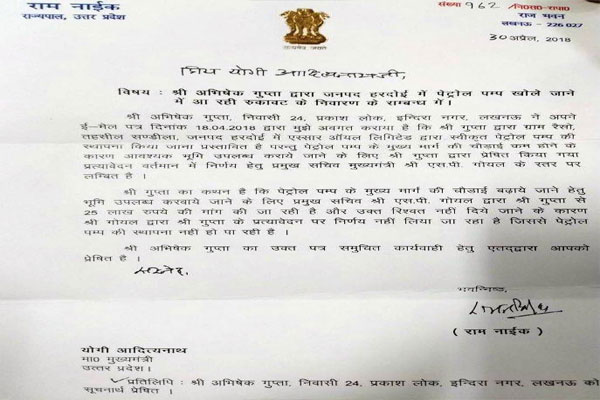 राम नाईक
राज्यपाल, उत्तर प्रदेश
संख्या 962 /
राज भवन
लखनऊ - 226 027
30 अप्रैल, 2018
प्रिय योगी आदित्यनाथजी,
विषय : श्री अभिषेक गुप्ता द्वारा जनपद हरदोई में पेट्रोल पम्प खोले जाने
में आ रही रुकावट के निवारण के सम्बन्ध में।
श्री अभिषेक गुप्ता, निवासी 24, प्रकाश लोक, इन्दिरा नगर, लखनऊ ने अपने
ई-मेल पत्र दिनांक 18.04.2018 द्वारा मुझे अवगत कराया है कि श्री गुप्ता द्वारा ग्राम रैसो,
तहसील सण्डीला, जनपद हरदोई में एस्सार ऑयल लिमिटेड द्वारा स्वीकृत पेट्रोल पम्प की
स्थापना किया जाना प्रस्तावित है परन्तु पेट्रोल पम्प के मुख्य मार्ग की चौड़ाई कम होने के
कारण आवश्यक भूमि उपलब्ध कराये जाने के लिए श्री गुप्ता द्वारा प्रेषित किया गया
प्रत्यावेदन वर्तमान में निर्णय हेतु प्रमुख सचिव मुख्यमंत्री श्री एस.पी. गोयल के स्तर पर
लम्बित है ।
श्री गुप्ता का कथन है कि पेट्रोल पम्प के मुख्य मार्ग की चौड़ाई बढ़ाये जाने हेतु
भूमि उपलब्ध करवाये जाने के लिए प्रमुख सचिव श्री एस.पी. गोयल द्वारा श्री गुप्ता से
25 लाख रुपये की मांग की जा रही है और उक्त रिश्वत नहीं दिये जाने के कारण
श्री गोयल द्वारा श्री गुप्ता के प्रत्यावेदन पर निर्णय नहीं लिया जा रहा है जिससे पेट्रोल
पम्प की स्थापना नहीं हो पा रही है ।
श्री अभिषेक गुप्ता का उक्त पत्र समुचित कार्यवाही हेतु एतद्द्वारा आपको
प्रेषित है ।
सस्नेह,
भवन्निष्ठ,
( राम नाईक )
योगी आदित्यनाथ
मा0 मुख्यमंत्री
उत्तर प्रदेश।
प्रतिलिपि : श्री अभिषेक गुप्ता, निवासी 24, प्रकाश लोक, इन्दिरा नगर, लखनऊ को
सूचनार्थ प्रेषित ।